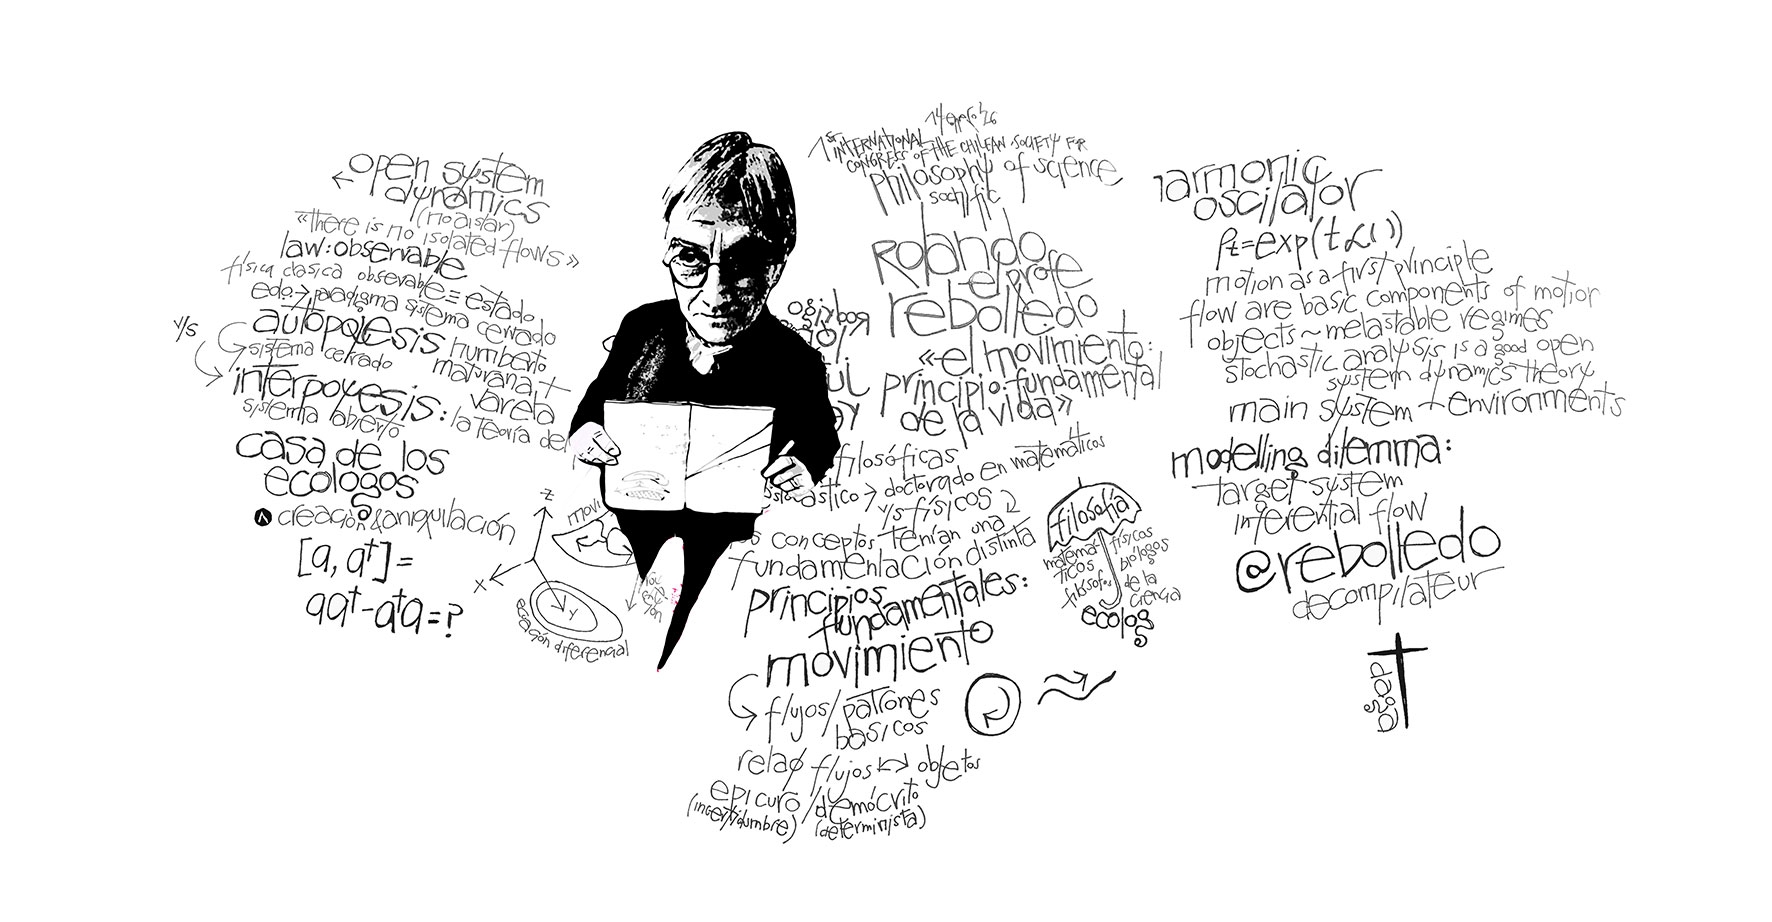 open system
dynamics
(no aislar)
«there is no isolated-flows»
law: observable
física clasica observable ≡ estado
edo → paradigma sistema cerrado
autopoiesis humberto
maturana +
varela
v/s
sistema cerrado
interpoyesis: la teoría del
sistema abierto
casa de los
ecologos
creación & aniquilación
[a, a†] =
aa† - a†a = ?
z
x
y
movi
ecuación diferencial
14 enero '26
1st INTERNATIONAL
CONGRESS OF THE CHILEAN SOCIETY FOR
Philosophy of science
sochific
rolando
el profe
rebolledo
«el movimiento:
principio fundamental
de la vida»
filosóficas
estocastico → doctorado en matemáticos
v/s físicos
conceptos tenían una
fundamentación distinta
principios
fundamentales:
movimiento
flujos/patrones
basicos
flujos ↔ objetos
epicuro / demócrito
(incertidumbre) (determinista)
filosofía
matemá-
ticos
filosofos
físicos
biólogos
de la
ciencia
ecolog
harmonic
oscilator
motion as a first principle
flow are basic components of motion
objects ~ metastable regimes
stochastic analysis is a good open
system dynamics theory
main system + environments
modelling dilemma:
target system
inferential flow
@rebolledo
decompilateur